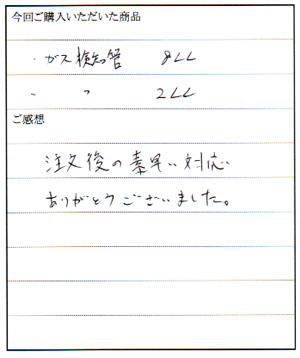 今回ご購入いただいた商品
・ガス検知管 8LL
・ 〃 2LL
ご感想
注文後の素早い対応
ありがとうございました。